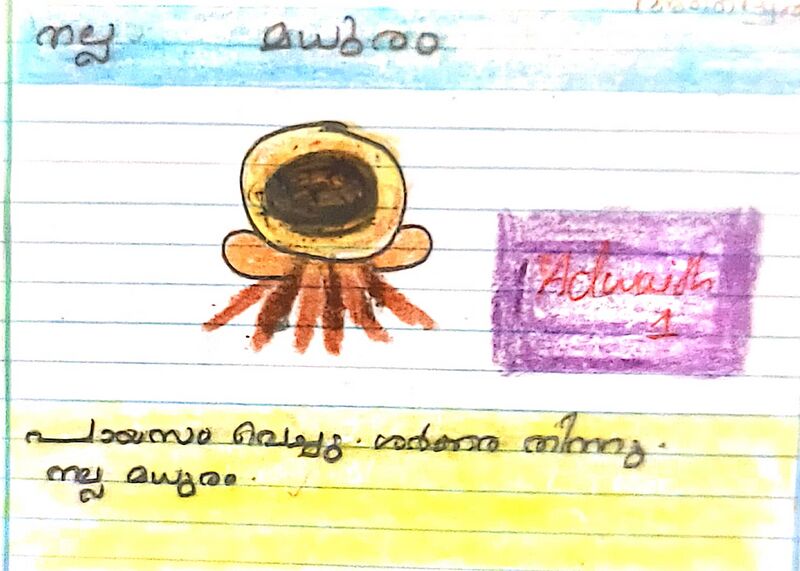 നല്ല മധുരം
Adwaith
1
പായസം വെച്ചു. ശർക്കര തിന്നു.
നല്ല മധുരം.